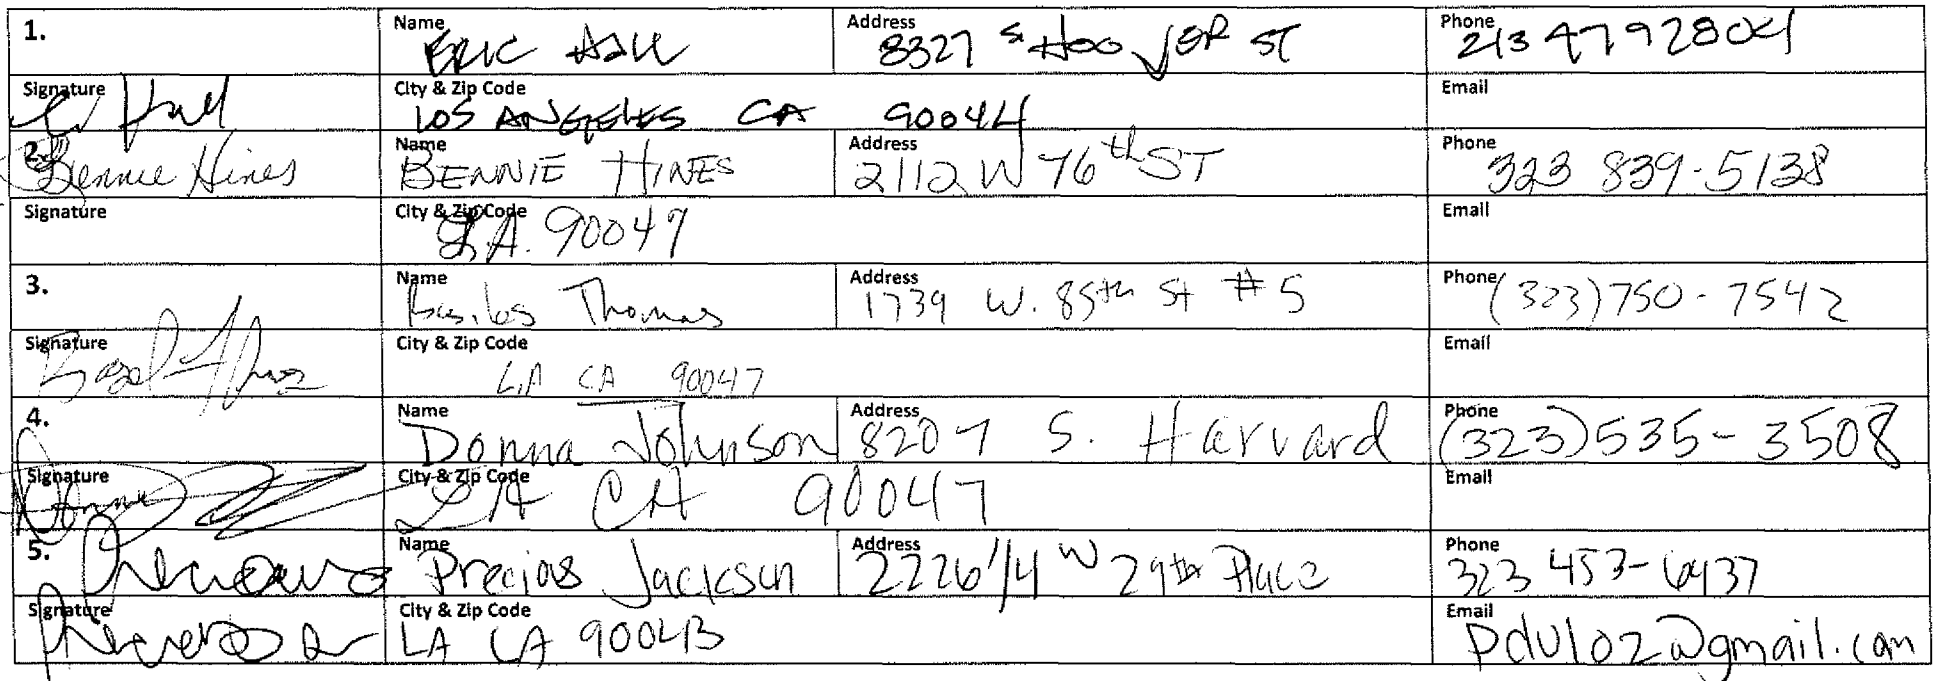 1. Name ERIC HALL Address 8327 S HOOVER ST Phone 213 4792804
Signature E Hall City & Zip Code LOS ANGELES CA 90044 Email
2. Bennie Hines Name BENNIE HINES Address 2112 W 76th ST Phone 323 839-5138
Signature City & Zip Code L.A. 90047 Email
3. Name Thomas Address 1739 W. 85th St #5 Phone (323)750-7542
Signature City & Zip Code LA CA 90047 Email
4. Name Donna Johnson Address 8207 S. Harvard Phone (323)535-3508
Signature Donna City & Zip Code LA CA 90047 Email
5. Precious Name Precious Jackson Address 2226 1/4 W 29th Place Phone 323 453-6437
Signature City & Zip Code LA CA 90043 Email pduloz@gmail.com